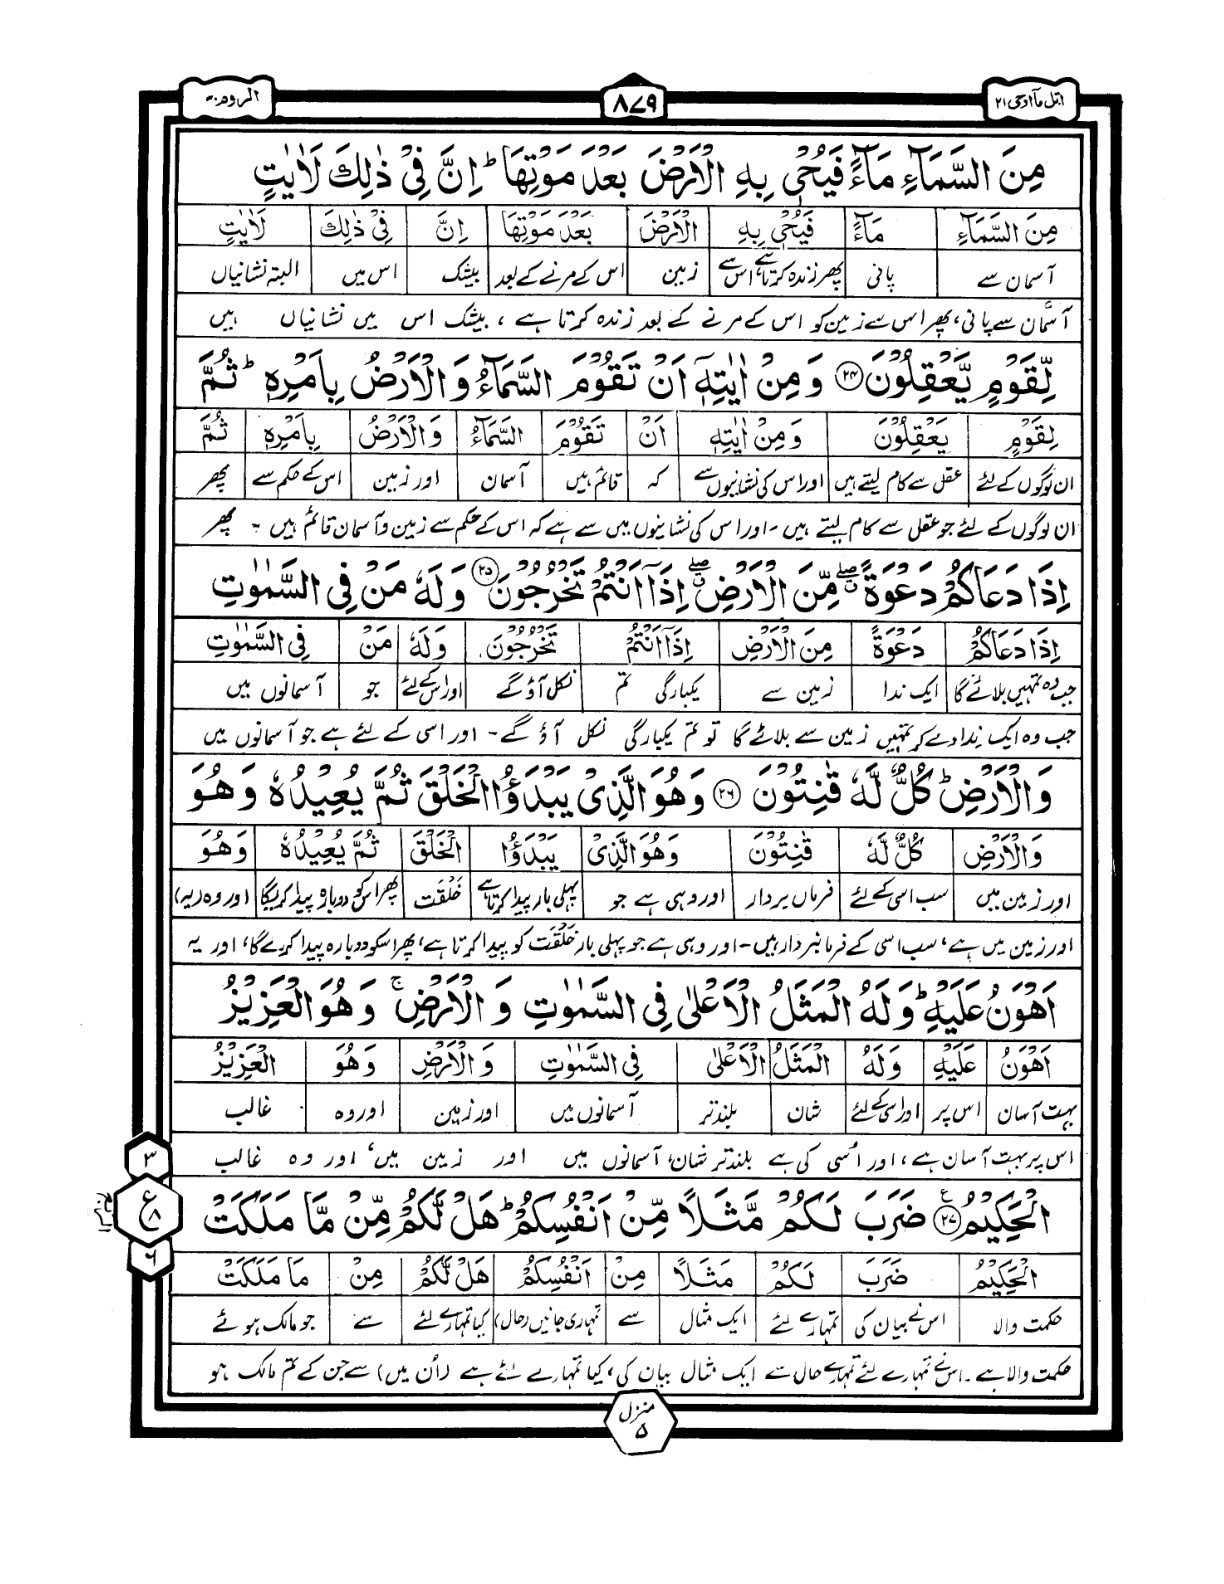 اتل مآ اوحی ۲۱
۸۷۹
الروم ۳۰
مِنَ السَّمَآءِ مَآءً فَیُحْیٖ بِهِ الْاَرْضَ بَعْدَ مَوْتِهَا ؕ اِنَّ فِیْ ذٰلِكَ لَاٰیٰتٍ
مِنَ السَّمَآءِ مَآءً فَیُحْیٖ بِهِ الْاَرْضَ بَعْدَ مَوْتِهَا اِنَّ فِیْ ذٰلِكَ لَاٰیٰتٍ
آسمان سے پانی پھر زندہ کرتا ہے اس سے زمین اس کے مرنے کے بعد بیشک اس میں البتہ نشانیاں
آسمان سے پانی، پھر اس سے زمین کو اس کے مرنے کے بعد زندہ کرتا ہے، بیشک اس میں نشانیاں ہیں
لِّقَوْمٍ یَّعْقِلُوْنَ ۲۴ وَ مِنْ اٰیٰتِهٖۤ اَنْ تَقُوْمَ السَّمَآءُ وَ الْاَرْضُ بِاَمْرِهٖ ؕ ثُمَّ
لِقَوْمٍ یَعْقِلُوْنَ وَ مِنْ اٰیٰتِهٖ اَنْ تَقُوْمَ السَّمَآءُ وَ الْاَرْضُ بِاَمْرِهٖ ثُمَّ
ان لوگوں کے لئے عقل سے کام لیتے ہیں اور اس کی نشانیوں سے کہ قائم ہیں آسمان اور زمین اس کے حکم سے پھر
ان لوگوں کے لئے جو عقل سے کام لیتے ہیں ۔ اور اس کی نشانیوں میں سے ہے کہ اس کے حکم سے زمین و آسمان قائم ہیں ۔ پھر
اِذَا دَعَاكُمْ دَعْوَةً ۖۗ مِّنَ الْاَرْضِ ۖۗ اِذَاۤ اَنْتُمْ تَخْرُجُوْنَ ۲۵ وَ لَهٗ مَنْ فِی السَّمٰوٰتِ
اِذَا دَعَاكُمْ دَعْوَةً مِنَ الْاَرْضِ اِذَاۤ اَنْتُمْ تَخْرُجُوْنَ وَ لَهٗ مَنْ فِی السَّمٰوٰتِ
جب وہ تمہیں بلائے گا ایک ندا زمین سے یکبارگی تم نکل آؤ گے اور اس کے لئے جو آسمانوں میں
جب وہ ایک ندا دے کر تمہیں زمین سے بلائے گا تو تم یکبارگی نکل آؤ گے ۔ اور اسی کے لئے ہے جو آسمانوں میں
وَ الْاَرْضِ ؕ كُلٌّ لَّهٗ قٰنِتُوْنَ ۲۶ وَ هُوَ الَّذِیْ یَبْدَؤُا الْخَلْقَ ثُمَّ یُعِیْدُهٗ وَ هُوَ
وَ الْاَرْضِ كُلٌّ لَّهٗ قٰنِتُوْنَ وَ هُوَ الَّذِیْ یَبْدَؤُا الْخَلْقَ ثُمَّ یُعِیْدُهٗ وَ هُوَ
اور زمین میں سب اسی کے لئے فرماں بردار اور وہی ہے جو پہلی بار پیدا کرتا ہے خَلْقَت پھر اس کو دوبارہ پیدا کریگا اور وہ (یہ)
اور زمین میں ہے، سب اسی کے فرمانبردار ہیں ۔ اور وہی ہے جو پہلی بار خَلْقَت کو پیدا کرتا ہے، پھر اسکو دوبارہ پیدا کرے گا، اور یہ
اَهْوَنُ عَلَیْهِ ؕ وَ لَهُ الْمَثَلُ الْاَعْلٰی فِی السَّمٰوٰتِ وَ الْاَرْضِ ۚ وَ هُوَ الْعَزِیْزُ
اَهْوَنُ عَلَیْهِ وَ لَهُ الْمَثَلُ الْاَعْلٰی فِی السَّمٰوٰتِ وَ الْاَرْضِ وَ هُوَ الْعَزِیْزُ
بہت آسان اس پر اور اسی کے لئے شان بلند تر آسمانوں میں اور زمین اور وہ غالب
اس پر بہت آسان ہے، اور اُسی کی ہے بلند تر شان، آسمانوں میں اور زمین میں، اور وہ غالب
۳
ع
۸
۶
الْحَكِیْمُ ۲۷ ضَرَبَ لَكُمْ مَّثَلًا مِّنْ اَنْفُسِكُمْ ؕ هَلْ لَّكُمْ مِّنْ مَّا مَلَكَتْ
الْحَكِیْمُ ضَرَبَ لَكُمْ مَثَلًا مِنْ اَنْفُسِكُمْ هَلْ لَّكُمْ مِنْ مَا مَلَكَتْ
حکمت والا اس نے بیان کی تمہارے لئے ایک مثال سے تمہاری جانیں (حال) کیا تمہارے لئے سے جو مالک ہوئے
حکمت والا ہے ۔ اس نے تمہارے لئے تمہارے حال سے ایک مثال بیان کی، کیا تمہارے لئے ہے (اُن میں) سے جن کے تم مالک ہو
منزل
۵